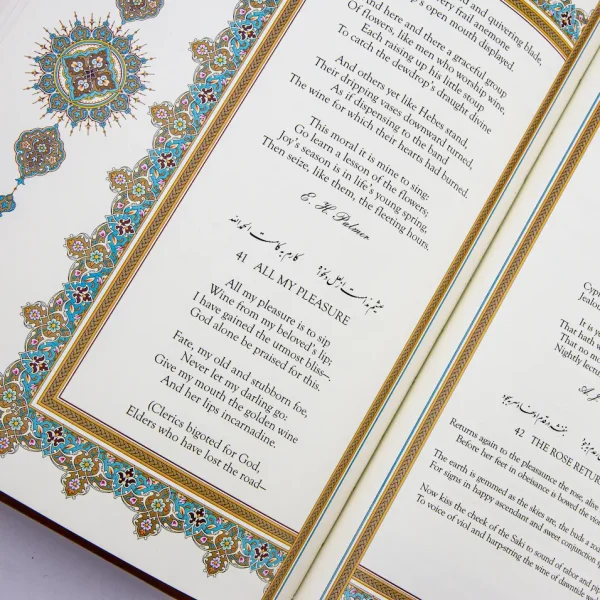 and quivering blade,
every frail anemone
's open mouth displayed.
And here and there a graceful group
Of flowers, like men who worship wine,
Each raising up his little stoup
To catch the dewdrop's draught divine
And others yet like Hebes stand,
Their dripping vases downward turned,
As if dispensing to the hand
The wine for which their hearts had burned.
This moral it is mine to sing:
Go learn a lesson of the flowers;
Joy's season is in life's young spring,
Then seize, like them, the fleeting hours.
E. H. Palmer
عیشم مدامست از لعل دلخواه کارم به کامست الحمدلله
41 ALL MY PLEASURE
All my pleasure is to sip
Wine from my beloved's lip;
I have gained the utmost bliss–,
God alone be praised for this.
Fate, my old and stubborn foe,
Never let my darling go:
Give my mouth the golden wine
And her lips incarnadine.
(Clerics bigoted for God,
Elders who have lost the road–
Cyp
Jealou
It is y
That hath w
That no mo
Nightly lectu
A. J
42 THE ROSE RETUR
Returns again to the pleasaunce the rose, alive
Before her feet in obeisance is bowed the vio
The earth is gemmed as the skies are, the buds a zod
For signs in happy ascendant and sweet conjunction s
Now kiss the cheek of the Saki to sound of tabor and pip
To voice of viol and harp-string the wine of dawntide wed